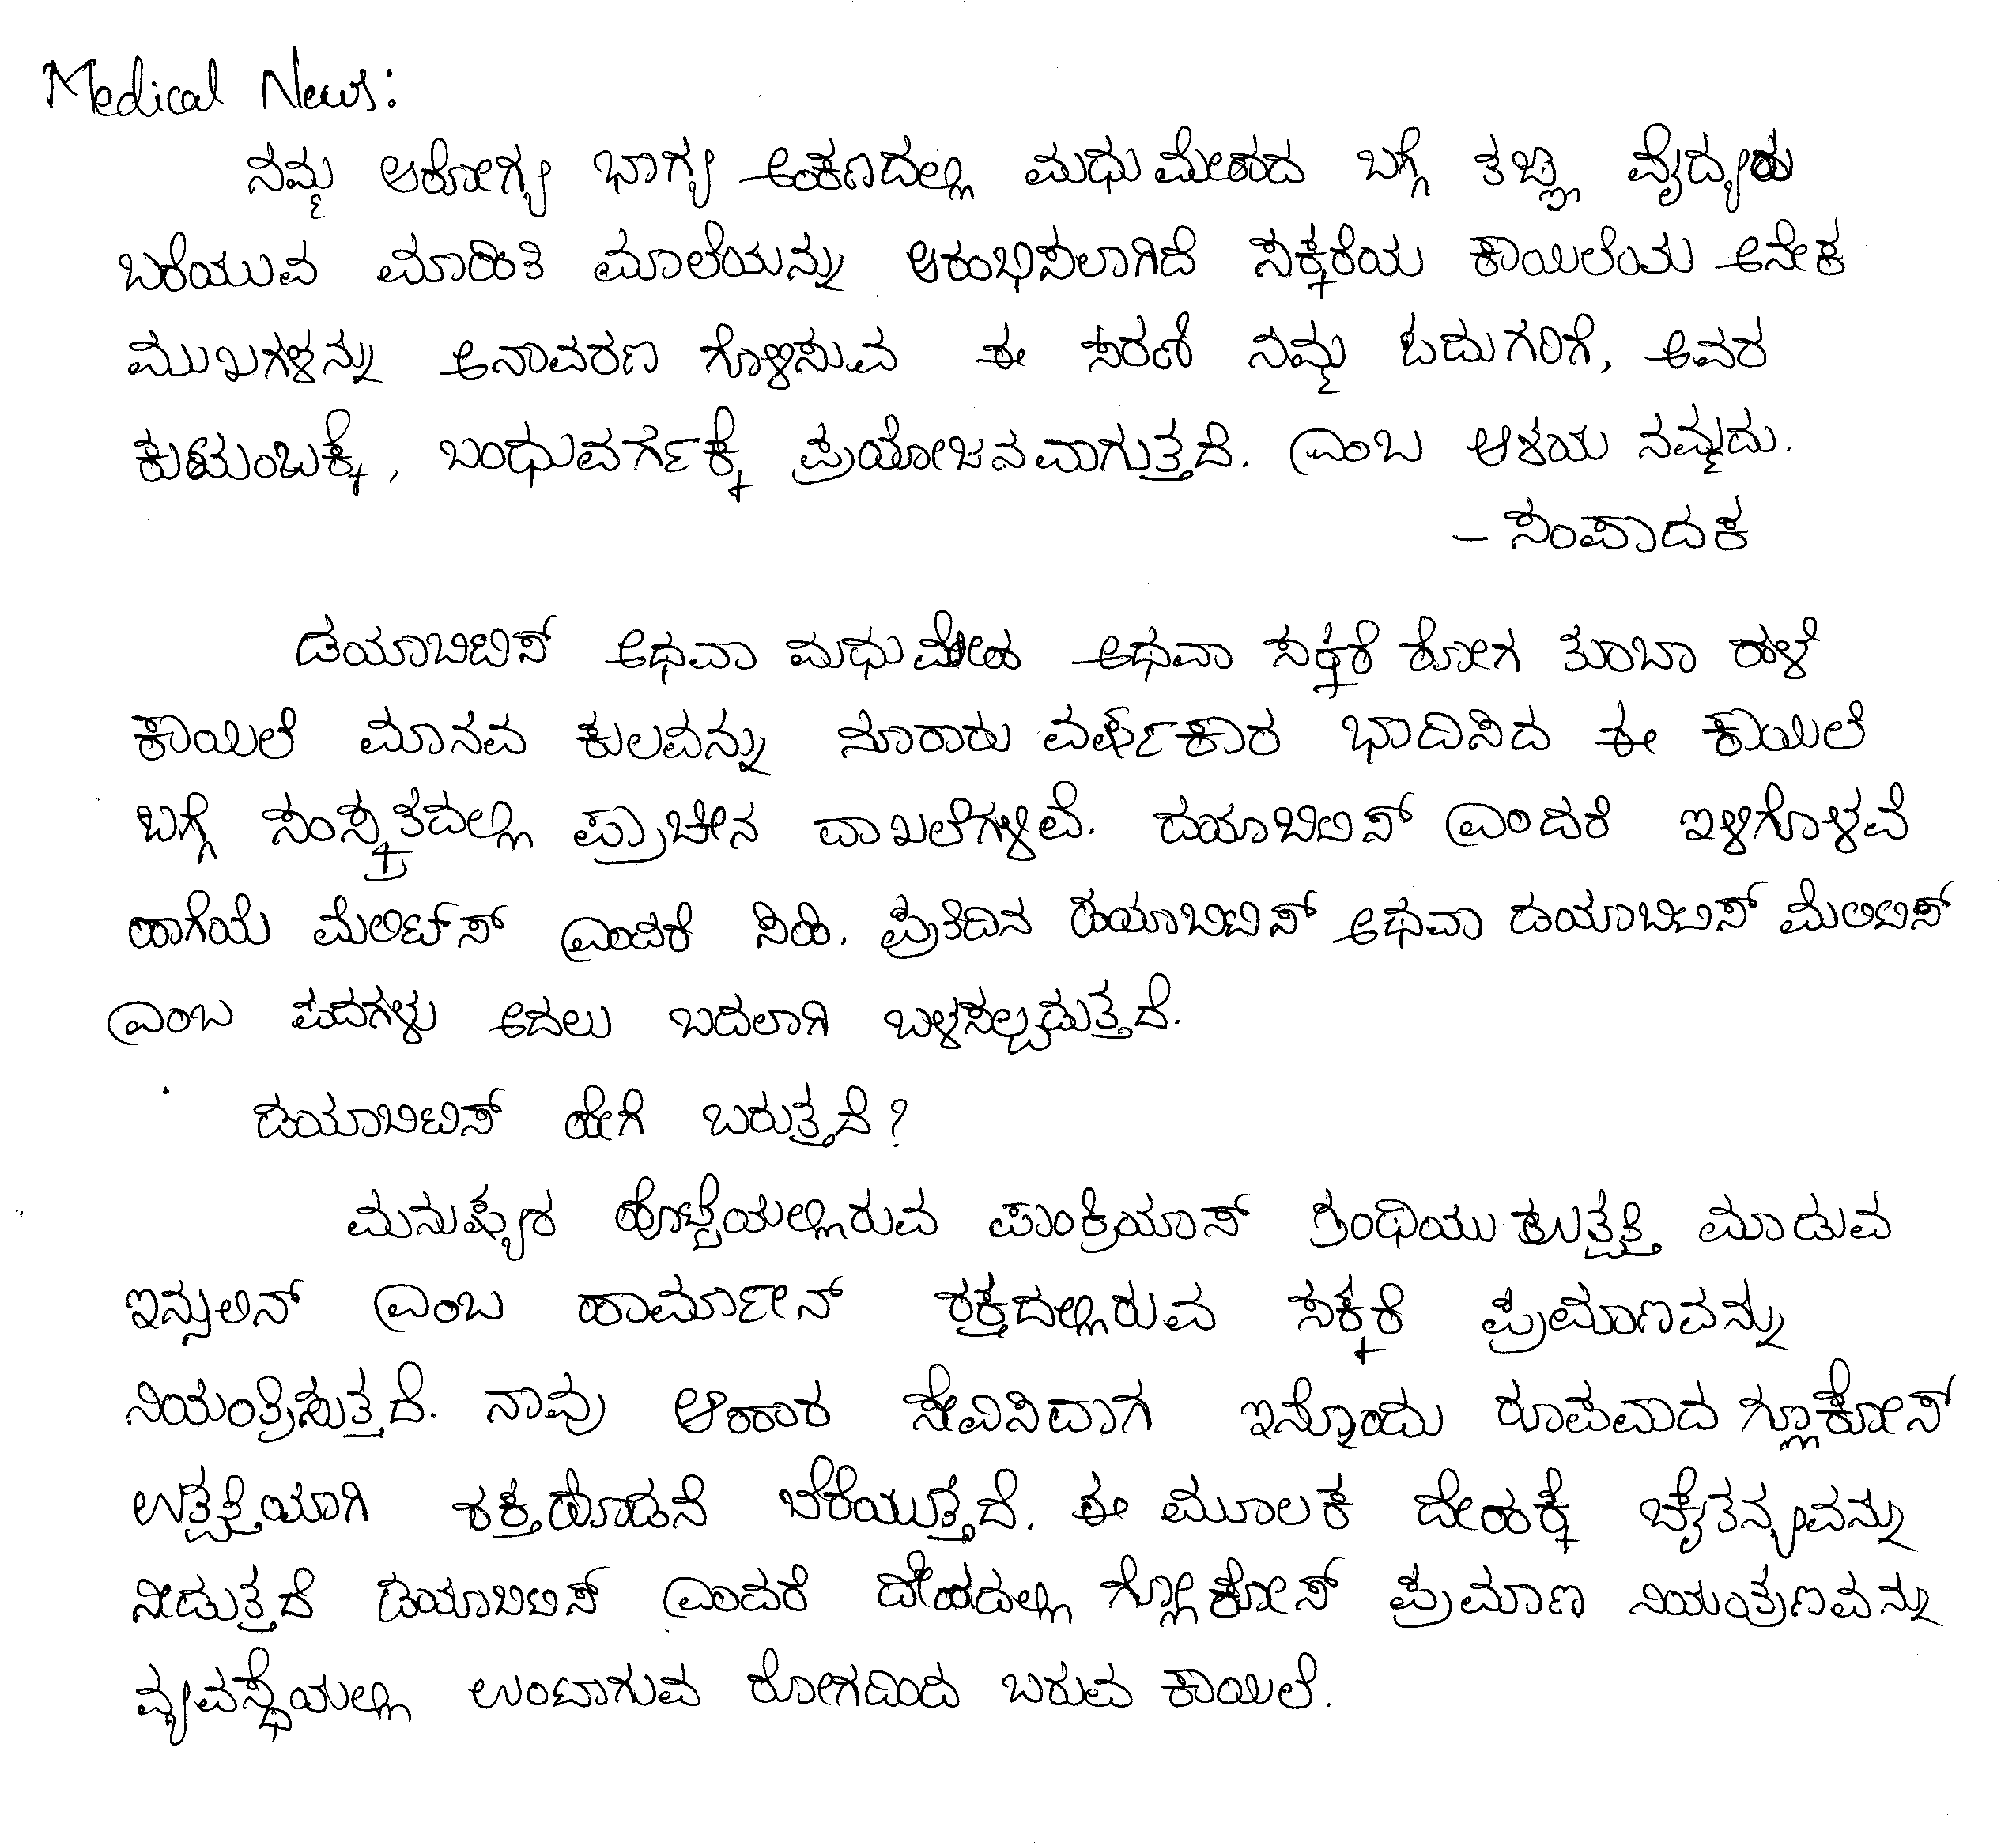 Medical News:
ನಮ್ಮ ಆರೋಗ್ಯ ಭಾಗ್ಯ ಅಂಕಣದಲ್ಲಿ ಮಧುಮೇಹದ ಬಗ್ಗೆ ತಜ್ಞ ವೈದ್ಯರು
ಬರೆಯುವ ಮಾಹಿತಿ ಮಾಲೆಯನ್ನು ಆರಂಭಿಸಲಾಗಿದೆ ಸಕ್ಕರೆಯ ಕಾಯಿಲೆಯ ಅನೇಕ
ಮುಖಗಳನ್ನು ಅನಾವರಣ ಗೊಳಿಸುವ ಈ ಸರಣಿ ನಿಮ್ಮ ಓದುಗರಿಗೆ, ಅವರ
ಕುಟುಂಬಕ್ಕೆ, ಬಂಧುವರ್ಗಕ್ಕೆ ಪ್ರಯೋಜನವಾಗುತ್ತದೆ. ಎಂಬ ಆಶಯ ನಮ್ಮದು.
- ಸಂಪಾದಕ
ಡಯಾಬಿಟಿಸ್ ಅಥವಾ ಮಧುಮೇಹ ಅಥವಾ ಸಕ್ಕರೆ ರೋಗ ತುಂಬಾ ಹಳೆ
ಕಾಯಿಲೆ ಮಾನವ ಕುಲವನ್ನು ನೂರಾರು ವರ್ಷಕಾರ ಭಾದಿಸಿದ ಈ ಕಾಯಿಲೆ
ಬಗ್ಗೆ ಸಂಸ್ಕೃತದಲ್ಲಿ ಪ್ರಾಚೀನ ದಾಖಲೆಗಳಿವೆ. ಡಯಾಬಿಟಿಸ್ ಎಂದರೆ ಇಳಿಗೊಳವೆ
ಹಾಗೆಯೆ ಮೆಲಿಟಸ್ ಎಂದರೆ ಸಿಹಿ. ಪ್ರತಿದಿನ ಡಯಾಬಿಟಿಸ್ ಅಥವಾ ಡಯಾಬಿಟಿಸ್ ಮೆಲಿಟಿಸ್
ಎಂಬ ಪದಗಳು ಅದಲು ಬದಲಾಗಿ ಬಳಸಲ್ಪಡುತ್ತದೆ.
ಡಯಾಬಿಟಿಸ್ ಹೇಗೆ ಬರುತ್ತದೆ?
ಮನುಷ್ಯರ ಹೊಟ್ಟೆಯಲ್ಲಿರುವ ಪಾಂಕ್ರಿಯಾಸ್ ಗ್ರಂಥಿಯು ಉತ್ಪತ್ತಿ ಮಾಡುವ
ಇನ್ಸುಲಿನ್ ಎಂಬ ಹಾರ್ಮೋನ್ ರಕ್ತದಲ್ಲಿರುವ ಸಕ್ಕರೆ ಪ್ರಮಾಣವನ್ನು
ನಿಯಂತ್ರಿಸುತ್ತದೆ. ನಾವು ಆಹಾರ ಸೇವಿಸಿದಾಗ ಇನ್ನೊಂದು ರೂಪವಾದ ಗ್ಲೂಕೋಸ್
ಉತ್ಪತ್ತಿಯಾಗಿ ರಕ್ತದೊಡನೆ ಬೆರೆಯುತ್ತದೆ. ಈ ಮೂಲಕ ದೇಹಕ್ಕೆ ಚೈತನ್ಯವನ್ನು
ನೀಡುತ್ತದೆ ಡಯಾಬಿಟಿಸ್ ಎಂದರೆ ದೇಹದಲ್ಲಿ ಗ್ಲೋಕೋಸ್ ಪ್ರಮಾಣ ನಿಯಂತ್ರಣವನ್ನು
ವ್ಯವಸ್ಥೆಯಲ್ಲಿ ಉಂಟಾಗುವ ರೋಗದಿಂದ ಬರುವ ಕಾಯಿಲೆ.